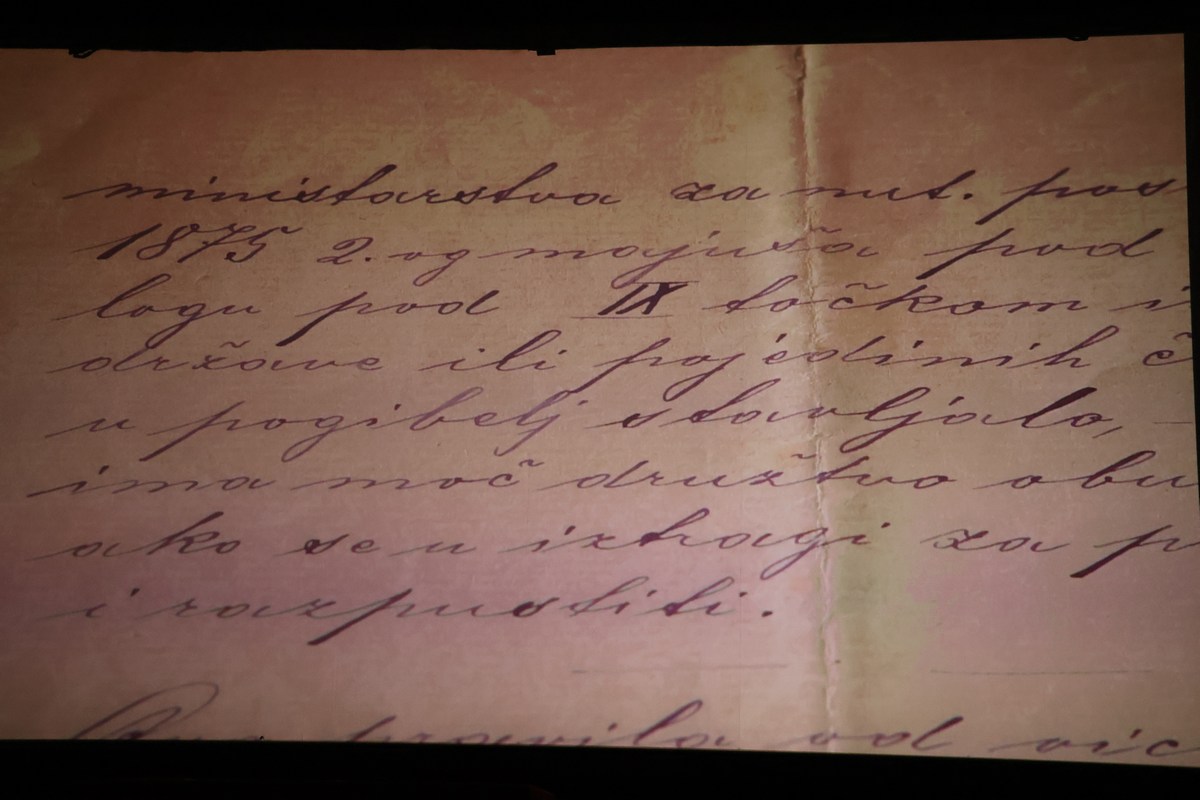 ministarstva za nut. pos
1875 2.og majuša pod
logu pod IX točkom i
države ili pojedinih č
u pogibelj stavljalo,
ima moč družtvo obu
ako se u iztragi za p
i razpustiti.
Ova pravila od vić